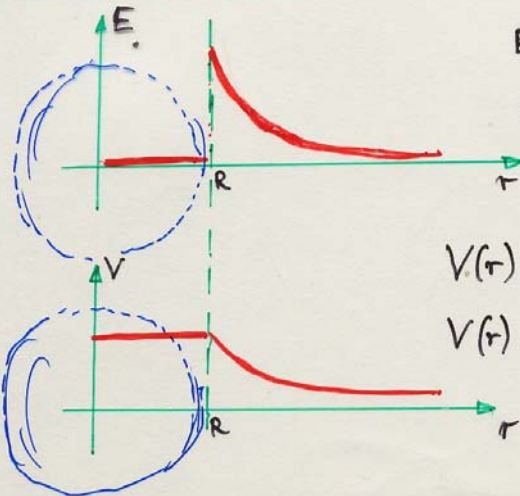 E
E
R
r
V
V(r)
V(r)
R
r